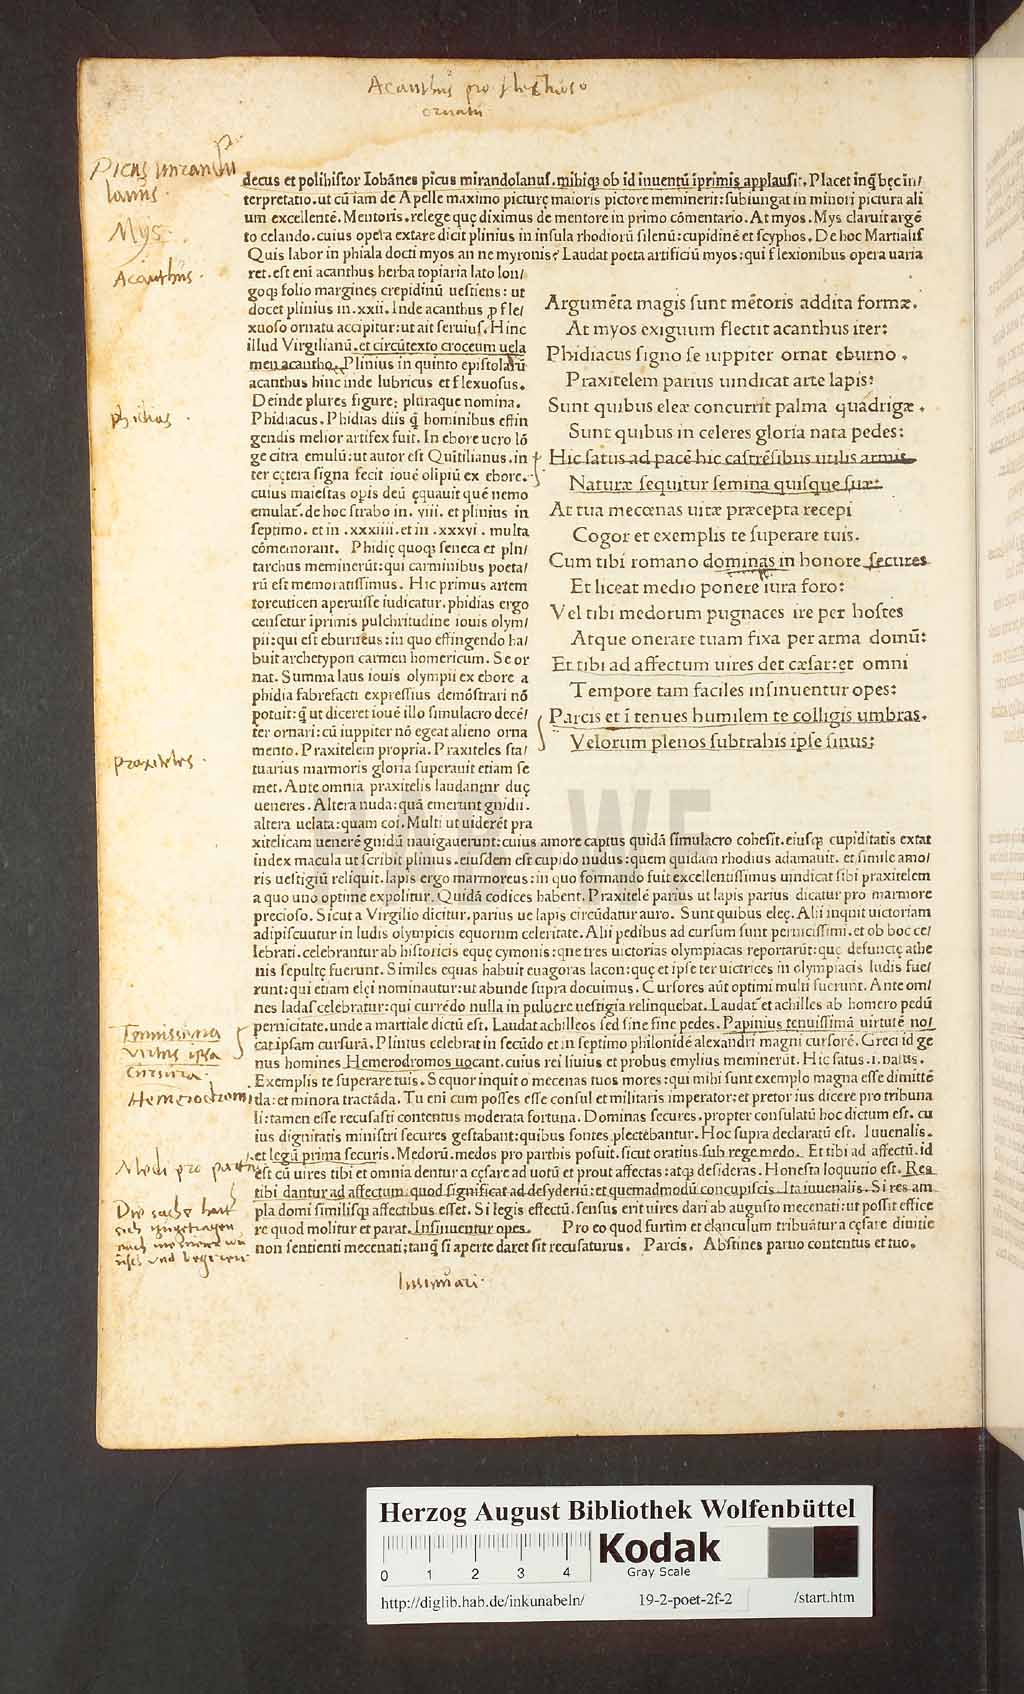 Acanthus pro flexuoso
ornatu
Picus mirandu
lanus.
Mys
Acanthus.
phidias.
praxiteles.
Tenuissima
virtus ipsa
cursura.
Hemerodromi
Medi pro parthis
Die sache hatt
sich zugetragen
nach meinem wu
nsch und begeren
decus et polihistor Iohānes picus mirandolanus. mihiq; ob id inuentū īprimis applausit. Placet inq̄ hęc in/
terpretatio. ut cū iam de Apelle maximo picturę maioris pictore meminerit: subiungat in minori pictura ali
um excellentē. Mentoris. relege quę diximus de mentore in primo cōmentario. At myos. Mys claruit argē
to celando. cuius opera extare dicit plinius in insula rhodiorū silenū: cupidinē et scyphos. De hoc Martialis
Quis labor in phiala docti myos an ne myronis? Laudat poeta artificiū myos: qui flexionibus opera uaria
ret. est eni acanthus herba topiaria lato lon/
goq; folio margines crepidinū uestiens: ut
docet plinius in .xxii. Inde acanthus p fle/
xuoso ornatu accipitur: ut ait seruius. Hinc
illud Virgilianū. et circūtexto croceum uela
men acantho. Plinius in quinto epistolarū
acanthus hinc inde lubricus et flexuosus.
Deinde plures figurę: pluraque nomina.
Phidiacus. Phidias diis q̄ hominibus effin
gendis melior artifex fuit. In ebore uero lō
ge citra emulū: ut autor est Quītilianus. in
ter cętera signa fecit iouē olīpiū ex ebore.
cuius maiestas opis deū ęquauit quē nemo
emulat. de hoc strabo in. viii. et plinius in
septimo. et in .xxxiiii. et in .xxxvi. multa
cōmemorant. Phidię quoq; seneca et plu/
tarchus meminerūt: qui carminibus poeta/
rū est memoratissimus. Hic primus artem
toreuticen aperuisse iudicatur. phidias ergo
censetur īprimis pulchritudine iouis olym/
pii: qui est eburneus: in quo effingendo ha/
buit archetypon carmen homericum. Se or
nat. Summa laus iouis olympii ex ebore a
phidia fabrefacti expressius demōstrari nō
potuit: q̄ ut diceret iouē illo simulacro decē/
ter ornari: cū iuppiter nō egeat alieno orna
mento. Praxitelem propria. Praxiteles sta/
tuarius marmoris gloria superauit etiam se
met. Ante omnia praxitelis laudantur duę
ueneres. Altera nuda: quā emerunt gnidii.
altera uelata: quam coi. Multi ut uiderēt pra
Argumēta magis sunt mētoris addita formæ.
At myos exiguum flectit acanthus iter:
Phidiacus signo se iuppiter ornat eburno.
Praxitelem parius uindicat arte lapis:
Sunt quibus eleæ concurrit palma quadrigæ.
Sunt quibus in celeres gloria nata pedes:
Hic satus ad pacē hic castrēsibus utilis armis
Naturæ sequitur semina quisque suæ:
At tua mecœnas uitæ præcepta recepi
Cogor et exemplis te superare tuis.
Cum tibi romano dominas in honore secures
Et liceat medio ponere iura foro:
Vel tibi medorum pugnaces ire per hostes
Atque onerare tuam fixa per arma domū:
Et tibi ad affectum uires det cæsar: et omni
Tempore tam faciles insinuentur opes:
Parcis et ī tenues humilem te colligis umbras.
Velorum plenos subtrahis ipse sinus:
xitelicam uenerē gnidū nauigauerunt: cuius amore captus quidā simulacro cohesit. eiusq; cupiditatis extat
index macula ut scribit plinius. eiusdem est cupido nudus: quem quidam rhodius adamauit. et simile amo/
ris uestigiū reliquit. lapis ergo marmoreus: in quo formando fuit excellentissimus uindicat sibi praxitelem
a quo uno optime expolitur. Quidā codices habent. Praxitelē parius ut lapis parius dicatur pro marmore
precioso. Sicut a Virgilio dicitur. parius ue lapis circūdatur auro. Sunt quibus eleę. Alii inquit uictoriam
adipiscuutur in ludis olympicis equorum celeritate. Alii pedibus ad cursum sunt pernicissimi. et ob hoc ce/
lebrati. celebrantur ab historicis equę cymonis: que tres uictorias olympiacas reportarūt: quę defunctę athe
nis sepultę fuerunt. Similes equas habuit euagoras lacon: quę et ipse ter uictrices in olympiacis ludis fue/
runt: qui etiam elei nominautur: ut abunde supra docuimus. Cursores aūt optimi multi fuerunt. Ante om/
nes ladas celebratur: qui currēdo nulla in puluere uestigia relinquebat. Laudat et achilles ab homero pedū
pernicitate. unde a martiale dictū est. Laudat achilleos sed sine fine pedes. Papinius tenuissimā uirtutē uo/
cat ipsam cursurā. Plinius celebrat in secūdo et in septimo philonidē alexandri magni cursorē. Greci id ge
nus homines Hemerodromos uocant. cuius rei liuius et probus emylius meminerūt. Hic satus .i. natus.
Exemplis te superare tuis. Sequor inquit o mecenas tuos mores: qui mihi sunt exemplo magna esse dimittē
da: et minora tractāda. Tu eni cum posses esse consul et militaris imperator: et pretor ius dicere pro tribuna
li: tamen esse recusasti contentus moderata fortuna. Dominas secures. propter consulatū hoc dictum est. cu
ius dignitatis ministri secures gestabant: quibus fontes plectēbantur. Hoc supra declaratū est. Iuuenalis.
et legū prima securis. Medorū. medos pro parthis posuit. sicut oratius sub rege medo. Et tibi ad affectū. id
est cū uires tibi et omnia dentur a cęsare ad uotū et prout affectas: atq; desideras. Honesta loquutio est. Res
tibi dantur ad affectum quod significat ad desyderiū: et quemadmodū concupiscis. Ita iuuenalis. Si res am
pla domi similisq; affectibus esset. Si legis effectū. sensus erit uires dari ab augusto mecenati: ut possit effice
re quod molitur et parat. Insinuentur opes. Pro eo quod furtim et clanculum tribuātur a cęsare diuitię
non sentienti mecenati; tanq̄ si aperte daret sit recusaturus. Parcis. Abstines paruo contentus et tuo.
Insinuari.
Herzog August Bibliothek Wolfenbüttel
Kodak
Gray Scale
0 1 2 3 4
http://diglib.hab.de/inkunabeln/ 19-2-poet-2f-2 /start.htm
HAB WF